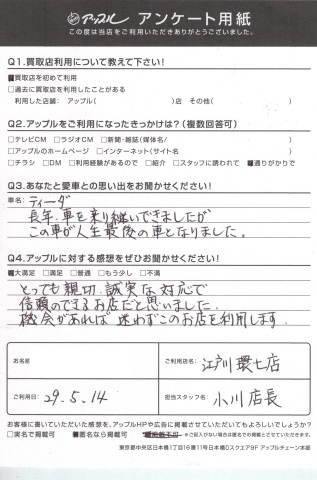 アップル アンケート用紙
この度は当店をご利用いただきありがとうございました。
Q1.買取店利用について教えて下さい!
■買取を初めて利用
□過去に買取店を利用したことがある
利用した店舗: アップル( )店 その他( )
Q2.アップルをご利用になったきっかけは?(複数回答可)
□テレビCM □ラジオCM □新聞・雑誌(媒体名/ )
□アップルのホームページ □インターネット(サイト名 )
□チラシ □DM □利用経験があるので □紹介 □スタッフに誘われて ■通りがかりで
Q3.あなたと愛車との思い出をお聞かせください!
車名: ティーダ
長年、車を乗り継いできましたが
この車が人生最後の車となりました。
Q4.アップルに対する感想をぜひお聞かせください!
■大満足 □満足 □普通 □もう少し □不満
とっても親切、誠実な対応で
信頼のできるお店だと思いました。
機会があれば迷わずこのお店を利用します。
お名前
ご利用店名: 江戸川環七店
ご利用日: 29.5.14
担当スタッフ名: 小川店長
お客様に書いていただいた感想を、アップルHPや広告に掲載させていただいてもよろしいでしょうか?
□実名で掲載可 ■匿名なら掲載可 ■掲載不可 ※ご記入がない場合は匿名での掲載とさせていただきます。
東京都中央区日本橋1丁目16番11号日本橋Dスクエア9F アップルチェーン本部